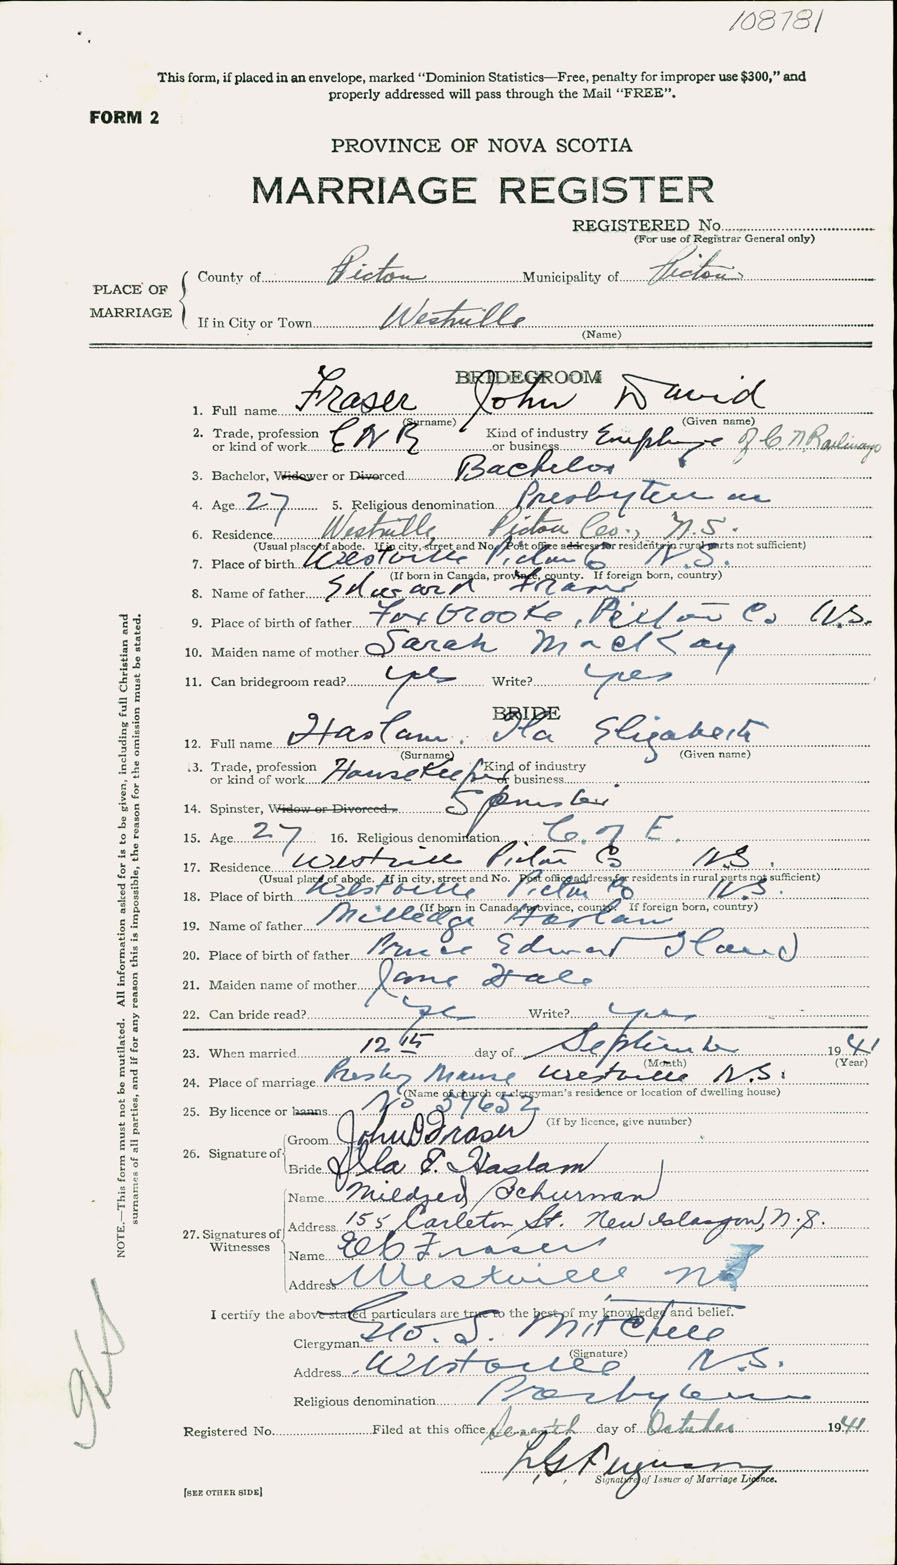 108781
This form, if placed in an envelope, marked “Dominion Statistics—Free, penalty for improper use $300,” and
properly addressed will pass through the Mail “FREE”.
FORM 2
PROVINCE OF NOVA SCOTIA
MARRIAGE REGISTER
REGISTERED No.
(For use of Registrar General only)
PLACE OF MARRIAGE
County of Pictou Municipality of Pictou
If in City or Town Westville
(Name)
BRIDEGROOM
1. Full name Fraser John David
(Surname) (Given name)
2. Trade, profession or kind of work C N R Kind of industry or business Employee of C. N. Railways
3. Bachelor, Widower or Divorced Bachelor
4. Age 27 5. Religious denomination Presbyterian
6. Residence Westville, Pictou Co., N.S.
(Usual place of abode. If in city, street and No. Post office address for residents in rural parts not sufficient)
7. Place of birth Westville Pictou Co N.S.
(If born in Canada, province, county. If foreign born, country)
8. Name of father Edward Fraser
9. Place of birth of father Foxbrooke, Pictou Co N.S.
10. Maiden name of mother Sarah MacKay
11. Can bridegroom read? yes Write? yes
BRIDE
12. Full name Haslam. Ila Elizabeth
(Surname) (Given name)
13. Trade, profession or kind of work Housekeeper Kind of industry or business
14. Spinster, Widow or Divorced Spinster
15. Age 27 16. Religious denomination C. of E.
17. Residence Westville Pictou Co N.S.
(Usual place of abode. If in city, street and No. Post office address for residents in rural parts not sufficient)
18. Place of birth Westville Pictou Co N.S.
(If born in Canada, province, county. If foreign born, country)
19. Name of father Milledge Haslam
20. Place of birth of father Prince Edward Island
21. Maiden name of mother Jane Hale
22. Can bride read? yes Write? yes
23. When married 12th day of September 1941
(Month) (Year)
24. Place of marriage Presby Manse Westville N.S.
(Name of church or clergyman's residence or location of dwelling house)
25. By licence or banns No 37632
(If by licence, give number)
26. Signature of
Groom John D Fraser
Bride Ila E. Haslam
27. Signatures of Witnesses
Name Mildred Schurman
Address 155 Carleton St. New Glasgow, N.S.
Name Fraser
Address Westville NS
I certify the above stated particulars are true to the best of my knowledge and belief.
Clergyman Mitchell
(Signature)
Address Westville N.S.
Religious denomination Presbyterian
Registered No. Filed at this office Seventh day of October 1941
L. G. Ferguson
Signature of Issuer of Marriage Licence.
[SEE OTHER SIDE]
NOTE.—This form must not be mutilated. All information asked for is to be given, including full Christian and
surnames of all parties, and if for any reason this is impossible, the reason for the omission must be stated.